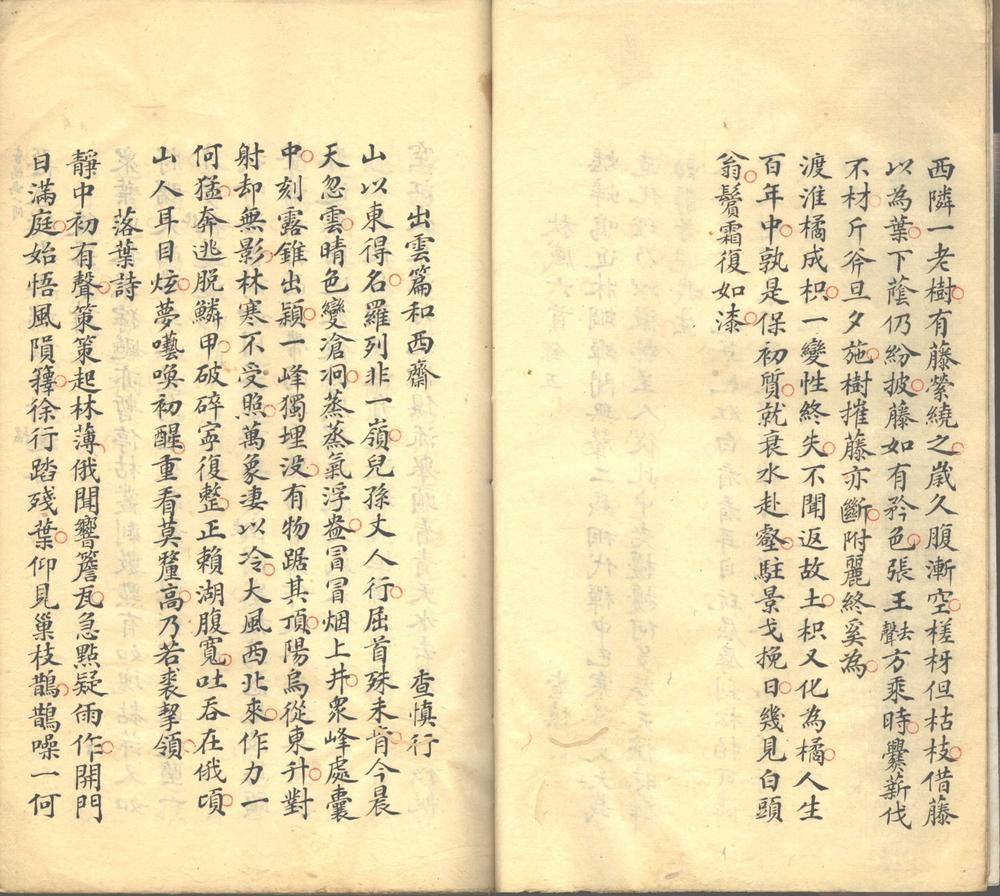 西隣一老樹有藤縈繞之歲久腹漸空槎枒但枯枝借藤
以為葉下蔭仍紛披藤如有矜色張王去聲方乘時爨薪伐
不材斤斧旦夕施樹摧藤亦斷附麗終奚為
渡淮橘成枳一變性終失不聞返故土枳又化為橘人生
百年中孰是保初質就衰水赴壑駐景戈挽日幾見白頭
翁鬢霜復如漆
出雲篇和西齋 查慎行
山以東得名羅列非一嶺兒孫丈人行屈首殊未肯今晨
天忽雲晴色變滄泂蒸蒸氣浮盎冒冒烟上井衆峰處囊
中刻露錐出穎一峰獨埋没有物踞其頂陽烏從東升對
射却無影林寒不受照萬象凄以冷大風西北來作力一
何猛奔逃脱鱗甲破碎寧復整正賴湖腹寬吐吞在俄頃
山人耳目炫夢囈喚初醒重看莫釐高乃若裘挈領
落葉詩
靜中初有聲策策起林薄俄聞響簷瓦急點疑雨作開門
日滿庭始悟風隕籜徐行踏殘葉仰見巢枝鵲鵲噪一何